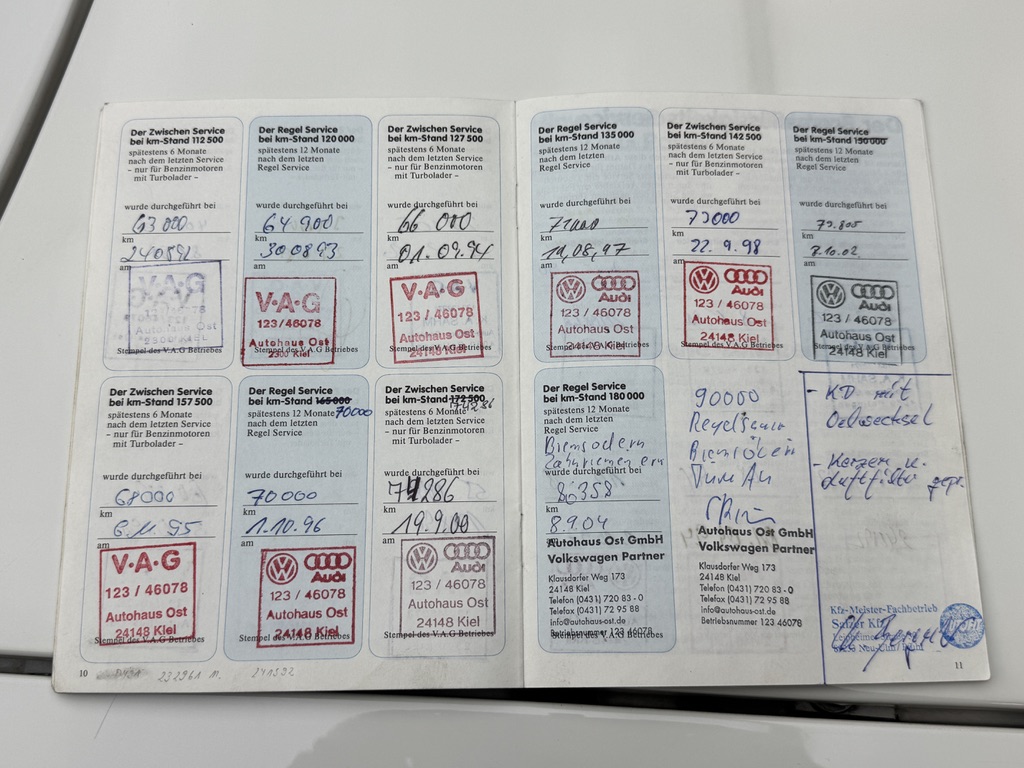 Der Zwischen Service
bei km-Stand 112 500
spätestens 6 Monate
nach dem letzten Service
- nur für Benzinmotoren
mit Turbolader -
wurde durchgeführt bei
63 000
km
240592
am
V·A·G
Autohaus Ost
2300 KIEL
Stempel des V.A.G Betriebes
Der Regel Service
bei km-Stand 120 000
spätestens 12 Monate
nach dem letzten
Regel Service
wurde durchgeführt bei
64 900
km
300893
am
V·A·G
123 / 46078
Autohaus Ost
2300 Kiel
Stempel des V.A.G Betriebes
Der Zwischen Service
bei km-Stand 127 500
spätestens 6 Monate
nach dem letzten Service
- nur für Benzinmotoren
mit Turbolader -
wurde durchgeführt bei
66 000
km
01.09.94
am
V·A·G
123 / 46078
Autohaus Ost
24148 Kiel
Stempel des V.A.G Betriebes
Der Zwischen Service
bei km-Stand 157 500
spätestens 6 Monate
nach dem letzten Service
- nur für Benzinmotoren
mit Turbolader -
wurde durchgeführt bei
68000
km
6.11.95
am
V·A·G
123 / 46078
Autohaus Ost
24148 Kiel
Stempel des V.A.G Betriebes
Der Regel Service
bei km-Stand 165 000
spätestens 12 Monate 70000
nach dem letzten
Regel Service
wurde durchgeführt bei
70000
km
1.10.96
am
Audi
123 / 46078
Autohaus Ost
24148 Kiel
Stempel des V.A.G Betriebes
Der Zwischen Service
bei km-Stand 172 500
spätestens 6 Monate
nach dem letzten Service
- nur für Benzinmotoren
mit Turbolader -
wurde durchgeführt bei
286
km
19.9.00
am
Audi
123 / 46078
Autohaus Ost
24148 Kiel
Stempel des V.A.G Betriebes
10
232961 M.
241592
Der Regel Service
bei km-Stand 135 000
spätestens 12 Monate
nach dem letzten
Regel Service
wurde durchgeführt bei
71000
km
11.08.97
am
Audi
123 / 46078
Autohaus Ost
24148 Kiel
Stempel des V.A.G Betriebes
Der Zwischen Service
bei km-Stand 142 500
spätestens 6 Monate
nach dem letzten Service
- nur für Benzinmotoren
mit Turbolader -
wurde durchgeführt bei
73000
km
22.9.98
am
Audi
123 / 46078
Autohaus Ost
24148 Kiel
Stempel des V.A.G Betriebes
Der Regel Service
bei km-Stand 150 000
spätestens 12 Monate
nach dem letzten
Regel Service
wurde durchgeführt bei
79.805
km
8.10.02
am
Audi
123 / 46078
Autohaus Ost
24148 Kiel
Stempel des V.A.G Betriebes
Der Regel Service
bei km-Stand 180 000
spätestens 12 Monate
nach dem letzten
Regel Service
Zahnriemen ern
wurde durchgeführt bei
86358
km
8.9.04
am
Autohaus Ost GmbH
Volkswagen Partner
Klausdorfer Weg 173
24148 Kiel
Telefon (0431) 720 83 - 0
Telefax (0431) 72 95 88
info@autohaus-ost.de
Betriebsnummer 123 46078
Stempel des V.A.G Betriebes
90000
Tüv Au
Autohaus Ost GmbH
Volkswagen Partner
Klausdorfer Weg 173
24148 Kiel
Telefon (0431) 720 83 - 0
Telefax (0431) 72 95 88
info@autohaus-ost.de
Betriebsnummer 123 46078
- KD mit
Oelwechsel
- Kerzen u.
Luftfilter gepr.
Kfz-Meister-Fachbetrieb
11